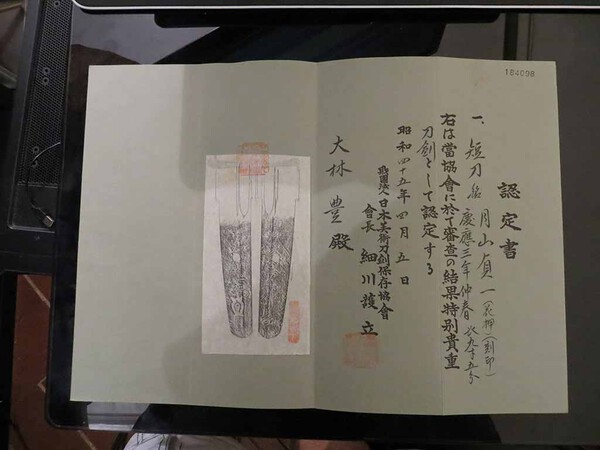 184098
認定書
一、短刀 銘 月山貞一（花押）（刻印）
慶應三年仲春 長九寸五分
右は當協會に於て審査の結果特別貴重
刀剣として認定する
昭和四十五年四月五日
財團法人日本美術刀剣保存協會
會長 細川護立
大林豊殿